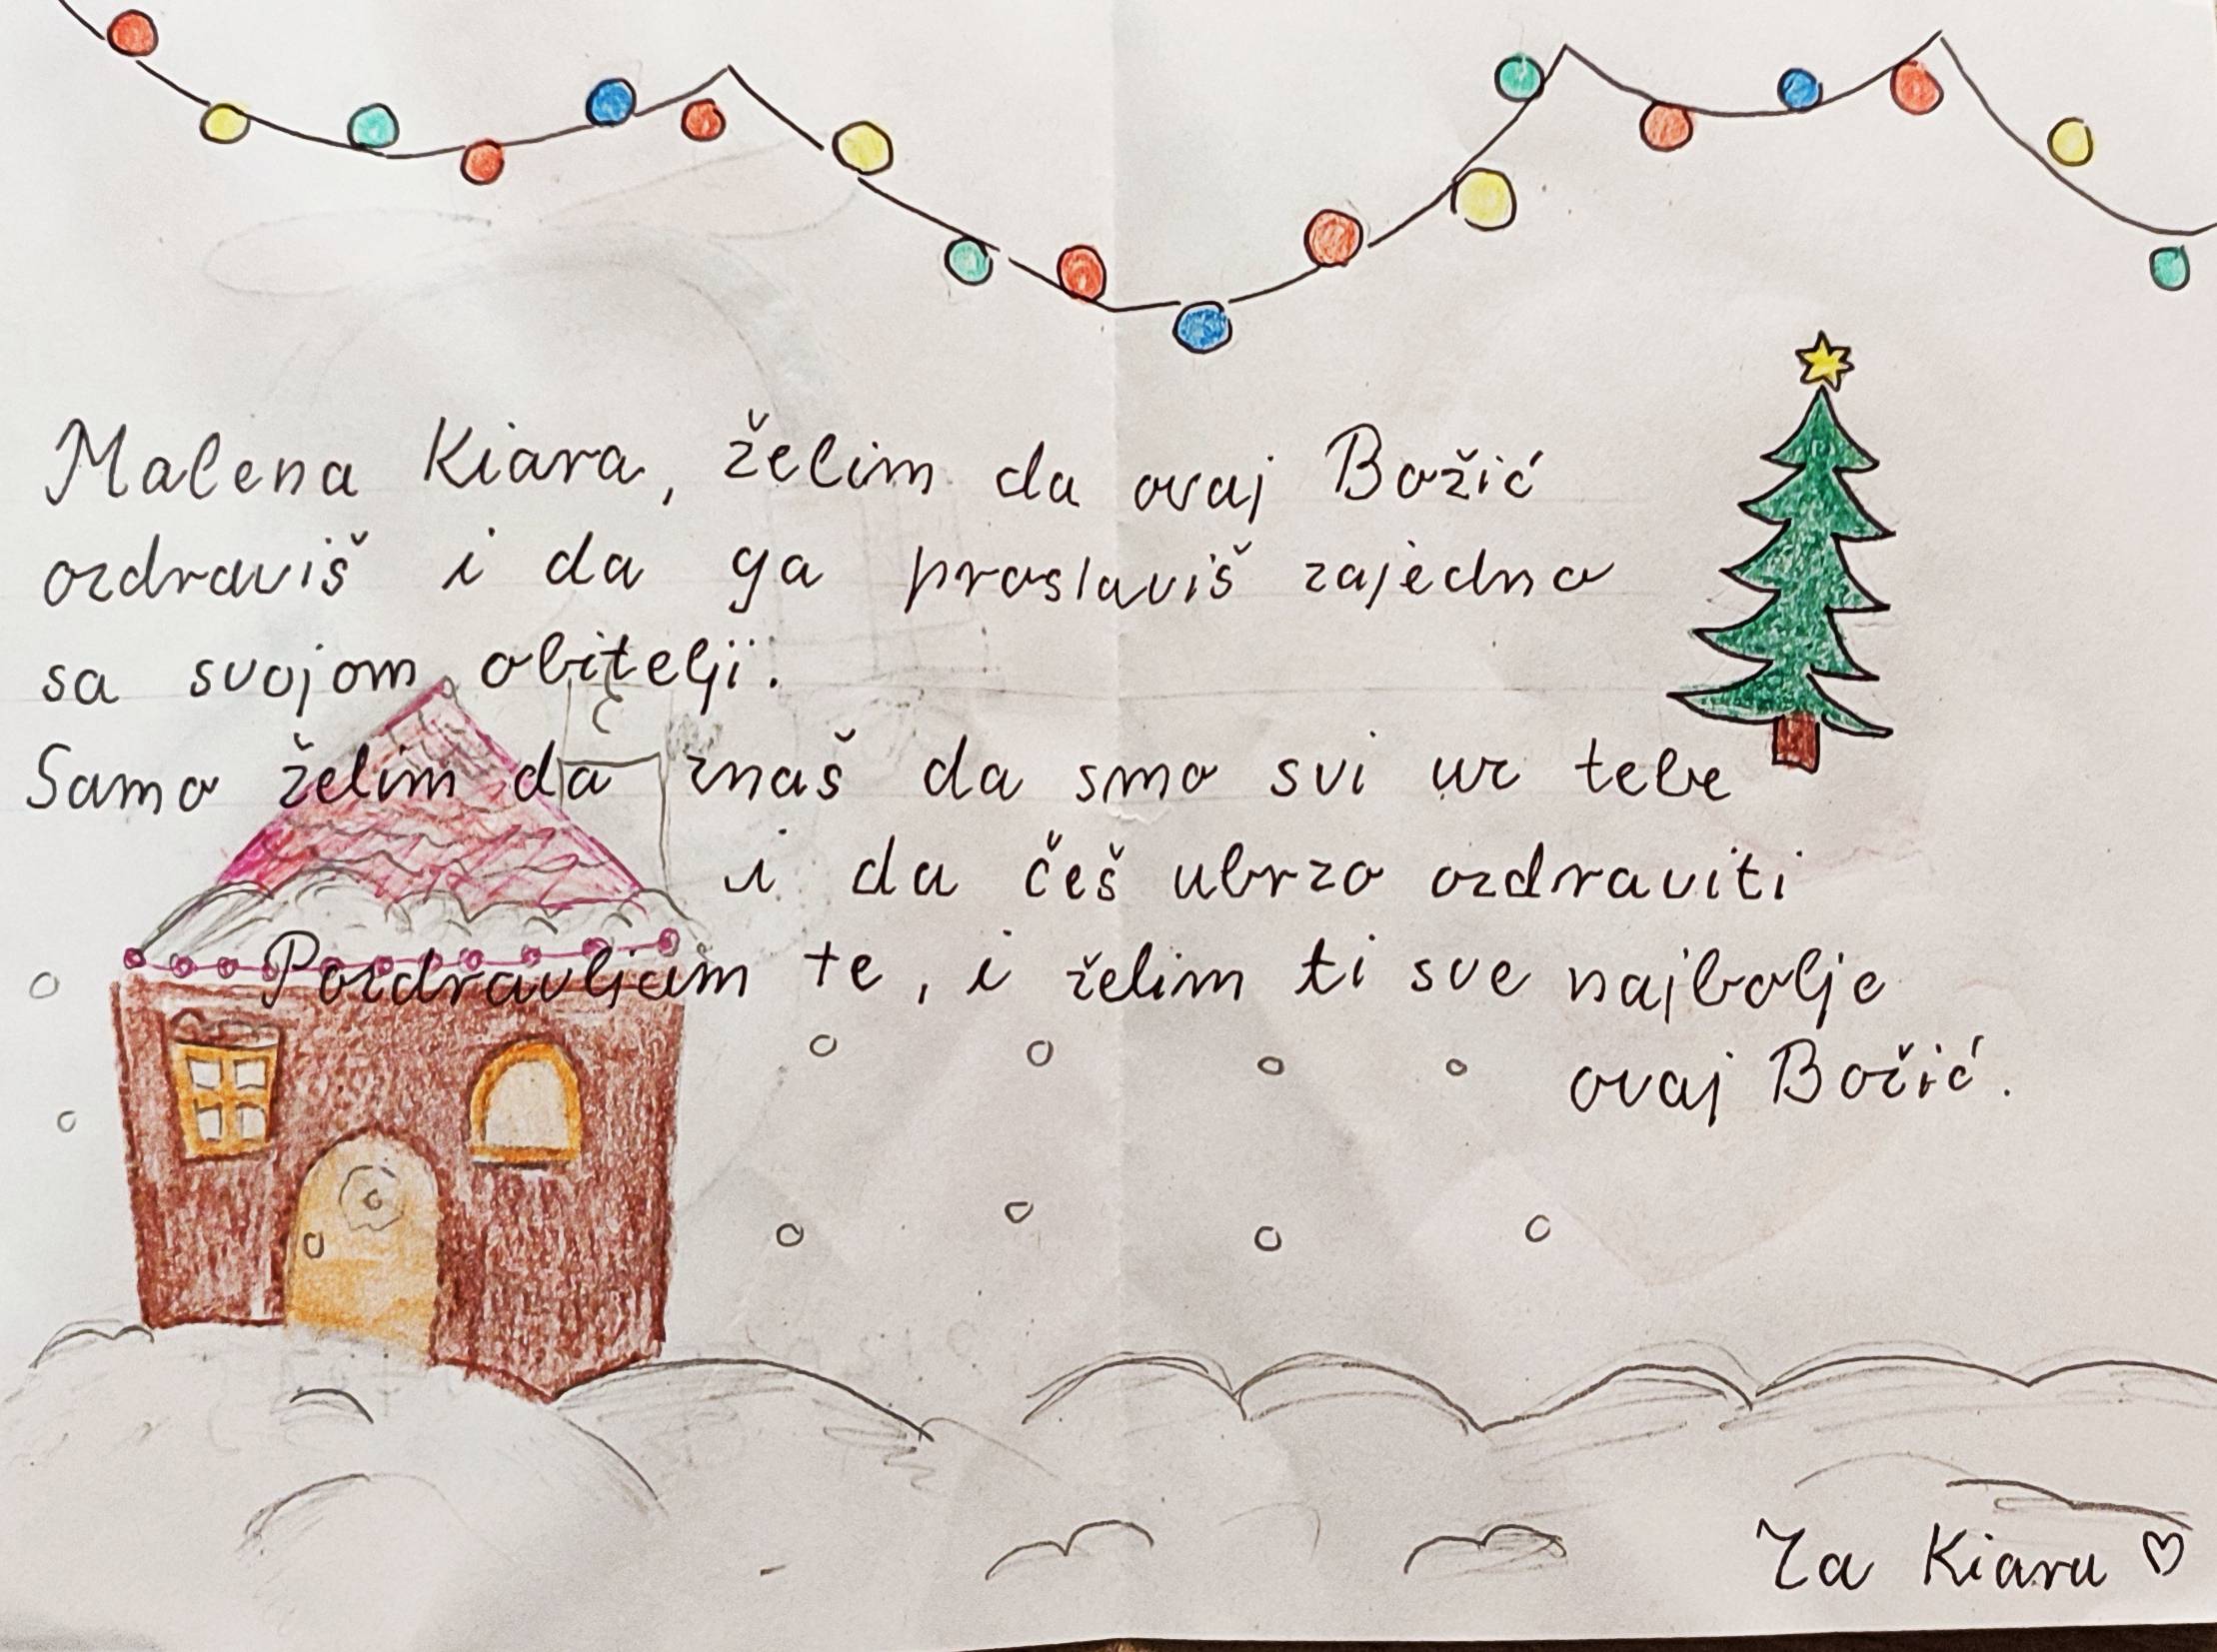 Malena Kiara, želim da ovaj Božić
ozdraviš i da ga proslaviš zajedno
sa svojom obitelji.
Samo želim da znaš da smo svi uz tebe
i da češ ubrzo ozdraviti
Pozdravljam te, i želim ti sve najbolje
ovaj Božić.
Za Kiaru ♡